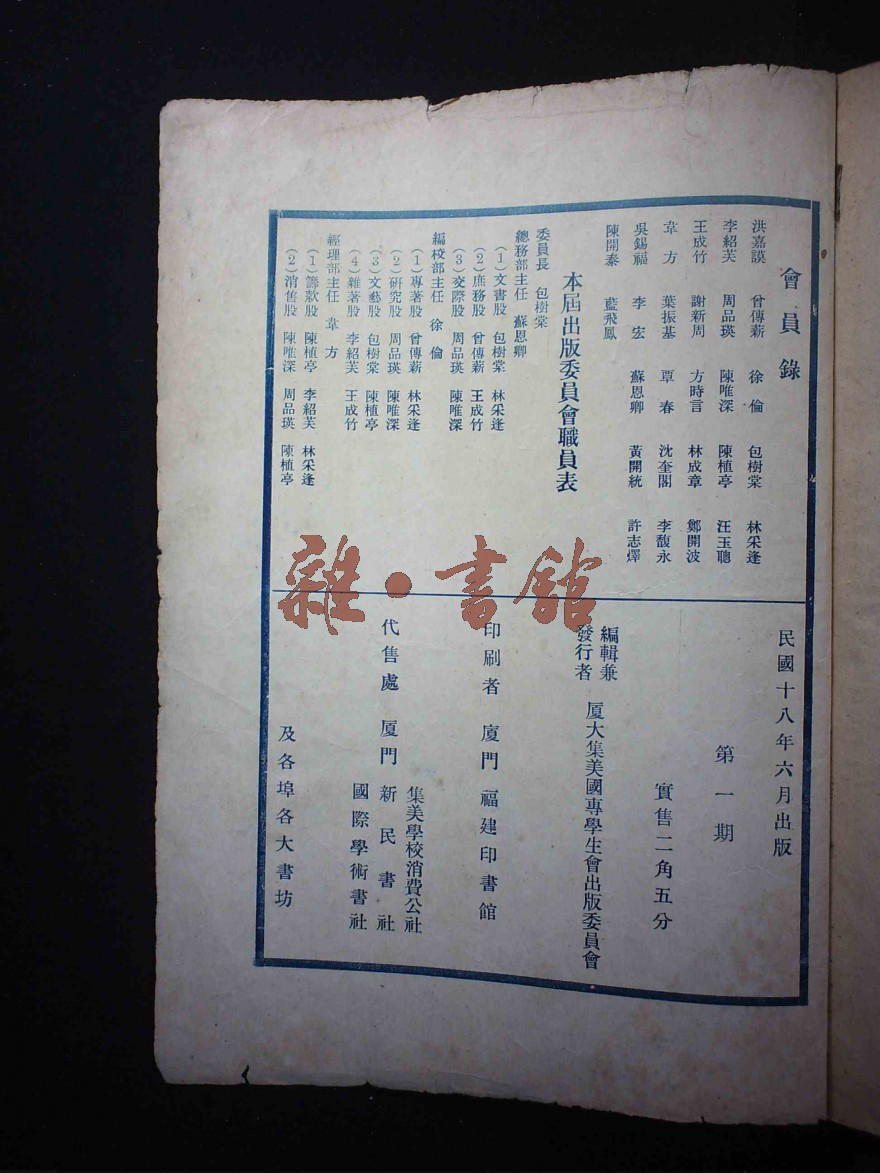 會員錄
洪嘉謨 曾傳薪 徐倫 包樹棠 林采逢
李紹芙 周品瑛 陳唯深 陳植亭 汪玉聰
王成竹 謝新周 方時言 林成章 鄭開波
韋方 葉振基 覃春 沈奎閣 李馥永
吳錫福 李宏 蘇恩卿 黃開統 許志澤
陳開泰 藍飛鳳
本屆出版委員會職員表
委員長 包樹棠
總務部主任 蘇恩卿
(1)文書股 包樹棠 林采逢
(2)庶務股 曾傳薪 王成竹
(3)交際股 周品瑛 陳唯深
編校部主任 徐倫
(1)專著股 曾傳薪 林采逢
(2)研究股 周品瑛 陳唯深
(3)文藝股 包樹棠 陳植亭
(4)雜著股 李紹芙 王成竹
經理部主任 韋方
(1)籌款股 陳植亭 李紹芙 林采逢
(2)消售股 陳唯深 周品瑛 陳植亭
民國十八年六月出版
第一期
實售二角五分
編輯兼
發行者 厦大集美國專學生會出版委員會
印刷者 廈門福建印書館
代售處 厦門
集美學校消費公社
新民書社
國際學術書社
及各埠各大書坊
雜·書館